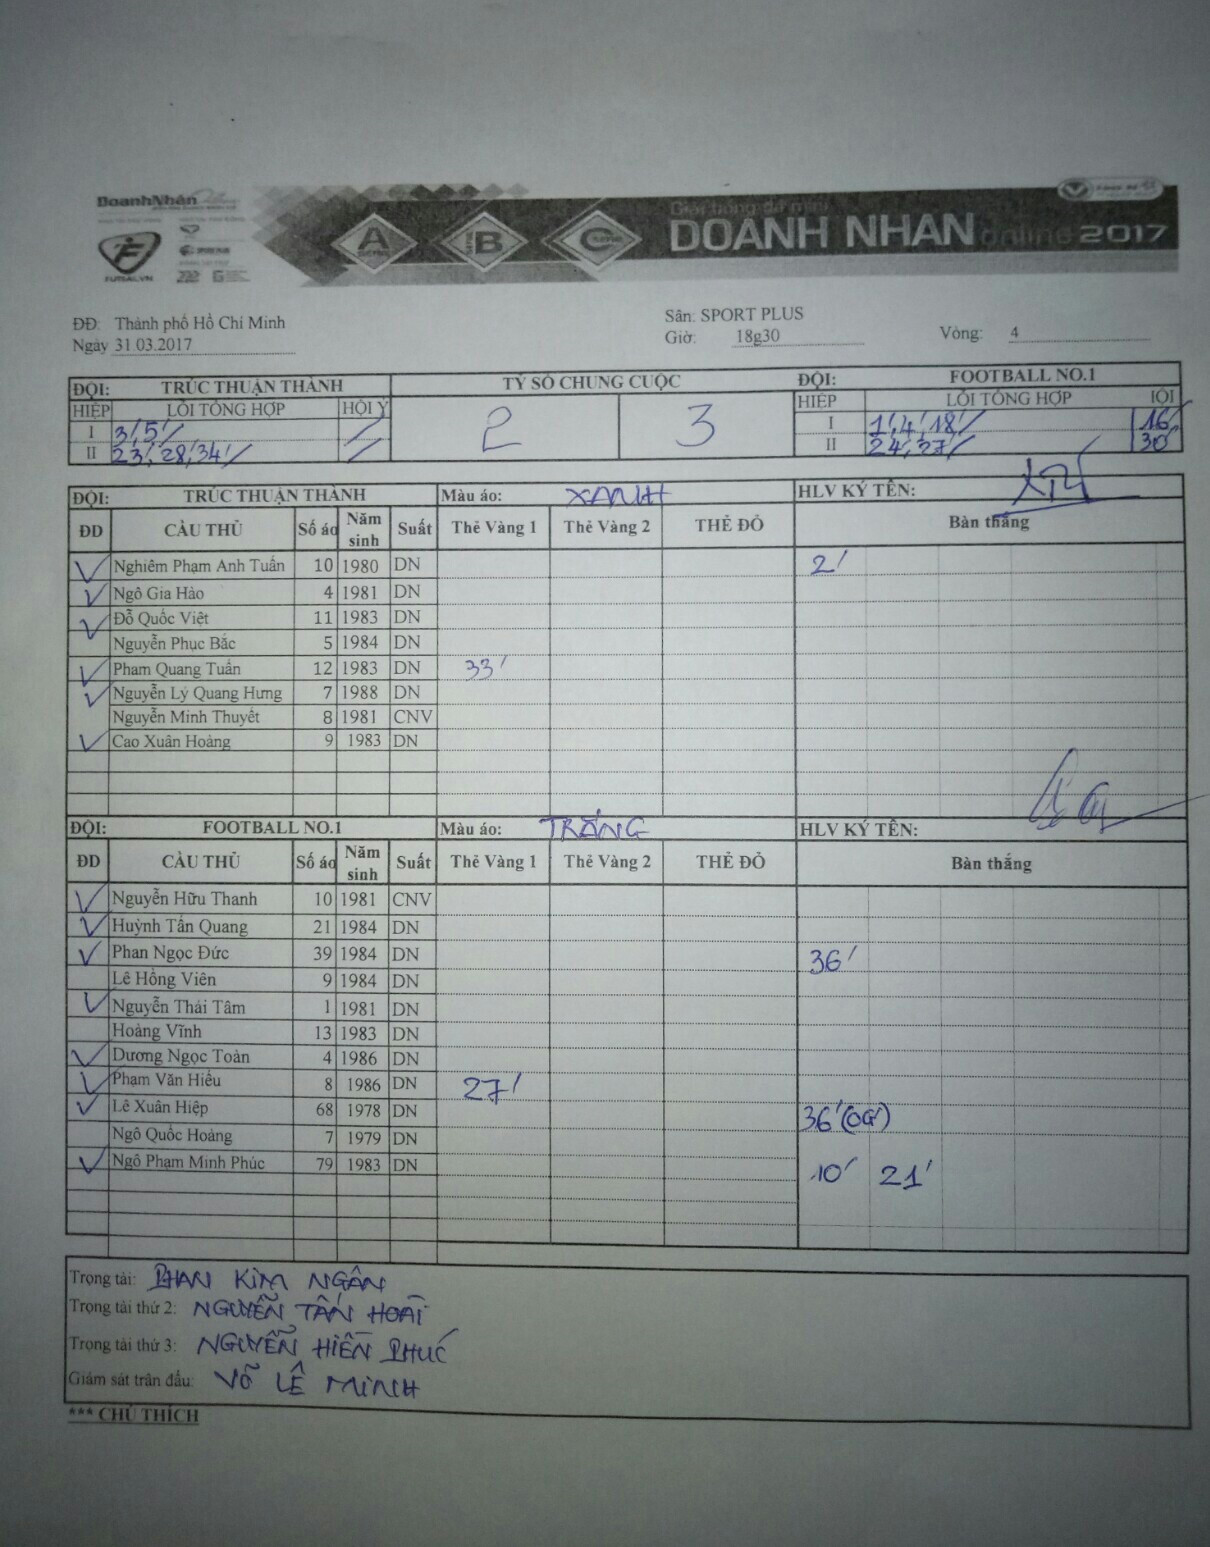 DoanhNhân
FUTSAL.VN
A B C
Giải bóng đá mini
DOANH NHAN online 2017
ĐĐ: Thành phố Hồ Chí Minh
Sân: SPORT PLUS
Ngày 31.03.2017
Giờ: 18g30
Vòng: 4
ĐỘI: TRÚC THUẬN THÀNH TỶ SỐ CHUNG CUỘC ĐỘI: FOOTBALL NO.1
HIỆP LỖI TỔNG HỢP HỘI Ý 2 3 HIỆP LỖI TỔNG HỢP
I 3', 5' I 1', 4', 18' 16'
II 23', 28', 34' II 24', 27' 30'
ĐỘI: TRÚC THUẬN THÀNH Màu áo: XANH HLV KÝ TÊN:
ĐD CẦU THỦ Số áo Năm sinh Suất Thẻ Vàng 1 Thẻ Vàng 2 THẺ ĐỎ Bàn thắng
Nghiêm Phạm Anh Tuấn 10 1980 DN 2'
Ngô Gia Hào 4 1981 DN
Đỗ Quốc Việt 11 1983 DN
Nguyễn Phục Bắc 5 1984 DN
Phạm Quang Tuấn 12 1983 DN 33'
Nguyễn Lý Quang Hưng 7 1988 DN
Nguyễn Minh Thuyết 8 1981 CNV
Cao Xuân Hoàng 9 1983 DN
ĐỘI: FOOTBALL NO.1 Màu áo: TRẮNG HLV KÝ TÊN:
ĐD CẦU THỦ Số áo Năm sinh Suất Thẻ Vàng 1 Thẻ Vàng 2 THẺ ĐỎ Bàn thắng
Nguyễn Hữu Thanh 10 1981 CNV
Huỳnh Tấn Quang 21 1984 DN
Phan Ngọc Đức 39 1984 DN 36'
Lê Hồng Viên 9 1984 DN
Nguyễn Thái Tâm 1 1981 DN
Hoàng Vĩnh 13 1983 DN
Dương Ngọc Toàn 4 1986 DN
Phạm Văn Hiếu 8 1986 DN 27'
Lê Xuân Hiệp 68 1978 DN 36' (OG')
Ngô Quốc Hoàng 7 1979 DN
Ngô Phạm Minh Phúc 79 1983 DN 10' 21'
Trọng tài: PHAN KIM NGÂN
Trọng tài thứ 2: NGUYỄN TẤN HOÀI
Trọng tài thứ 3: NGUYỄN HIỀN PHÚC
Giám sát trận đấu: VÕ LÊ MINH
*** CHÚ THÍCH